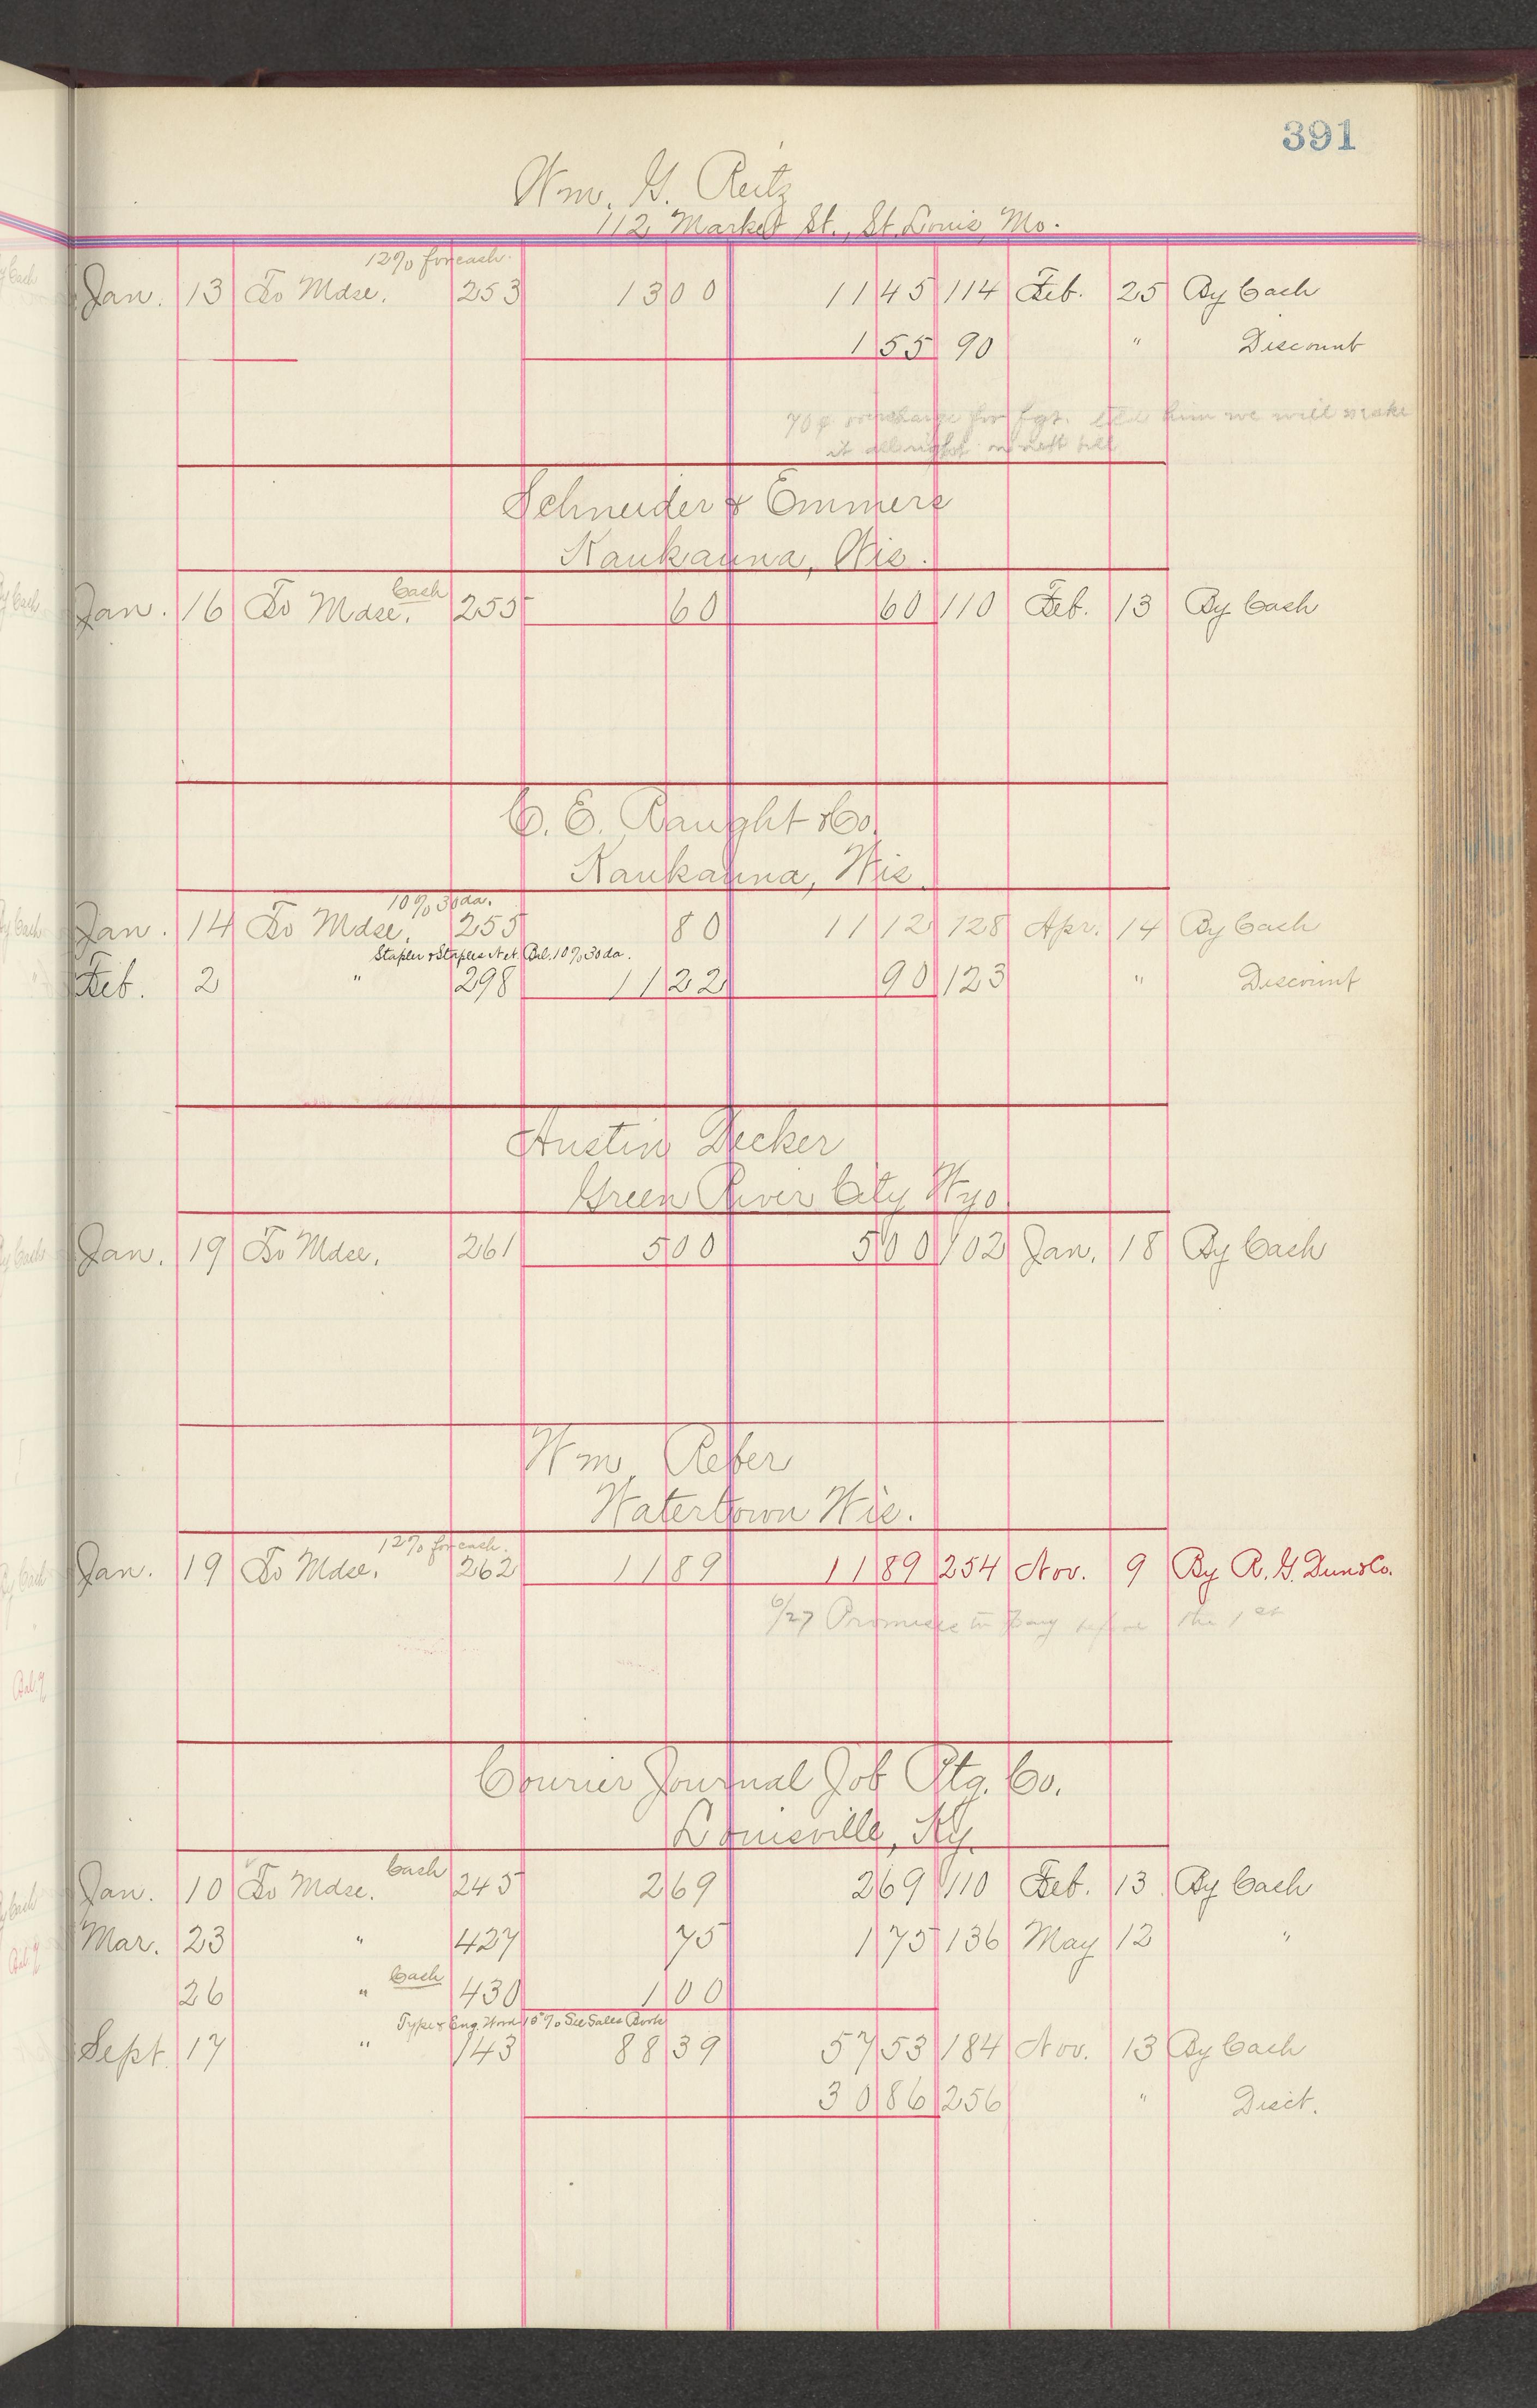 391
Wm. G. Reitz
112 Market St., St. Louis, Mo.
12% for cash.
Jan. 13 To Mdse. 253 13 00 11 45 114 Feb. 25 By Cash
1 55 90 " Discount
70¢ overcharge for fgt. told him we will make
it all right on next bill
Schneider & Emmers
Kaukauna, Wis.
Cash
Jan. 16 To Mdse. 255 60 60 110 Feb. 13 By Cash
C. E. Raught & Co.
Kaukauna, Wis.
10% 30 da.
Jan. 14 To Mdse. 255 80 11 12 128 Apr. 14 By Cash
Stapler & Staples Net. Bal. 10% 30 da.
Feb. 2 " 298 11 22 90 123 " Discount
Austin Decker
Green River City Wyo.
Jan. 19 To Mdse. 261 5 00 5 00 102 Jan. 18 By Cash
Wm. Reber
Watertown Wis.
12% for cash.
Jan. 19 To Mdse. 262 11 89 11 89 254 Nov. 9 By R. G. Dun & Co.
6/27 Promises to pay before the 1st
Courier Journal Job Ptg. Co.
Louisville, Ky.
Cash
Jan. 10 To Mdse. 245 2 69 2 69 110 Feb. 13 By Cash
Mar. 23 " 427 75 1 75 136 May 12 "
Cash
26 " 430 1 00
Type & Eng. Wood 10% See Sales Book
Sept. 17 " 143 88 39 57 53 184 Nov. 13 By Cash
30 86 256 " Disct.